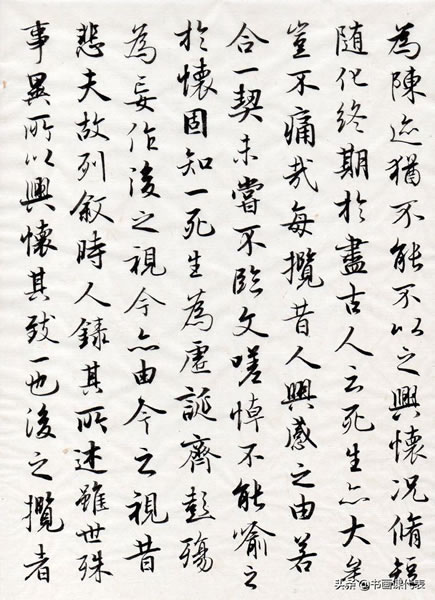 為陳迹猶不能不以之興懷況脩短
随化終期於盡古人云死生亦大矣
豈不痛哉每攬昔人興感之由若
合一契未嘗不臨文嗟悼不能喻之
於懷固知一死生為虛誕齊彭殤
為妄作後之視今亦由今之視昔
悲夫故列敘時人錄其所述雖世殊
事異所以興懷其致一也後之攬者
头条 @书画课代表